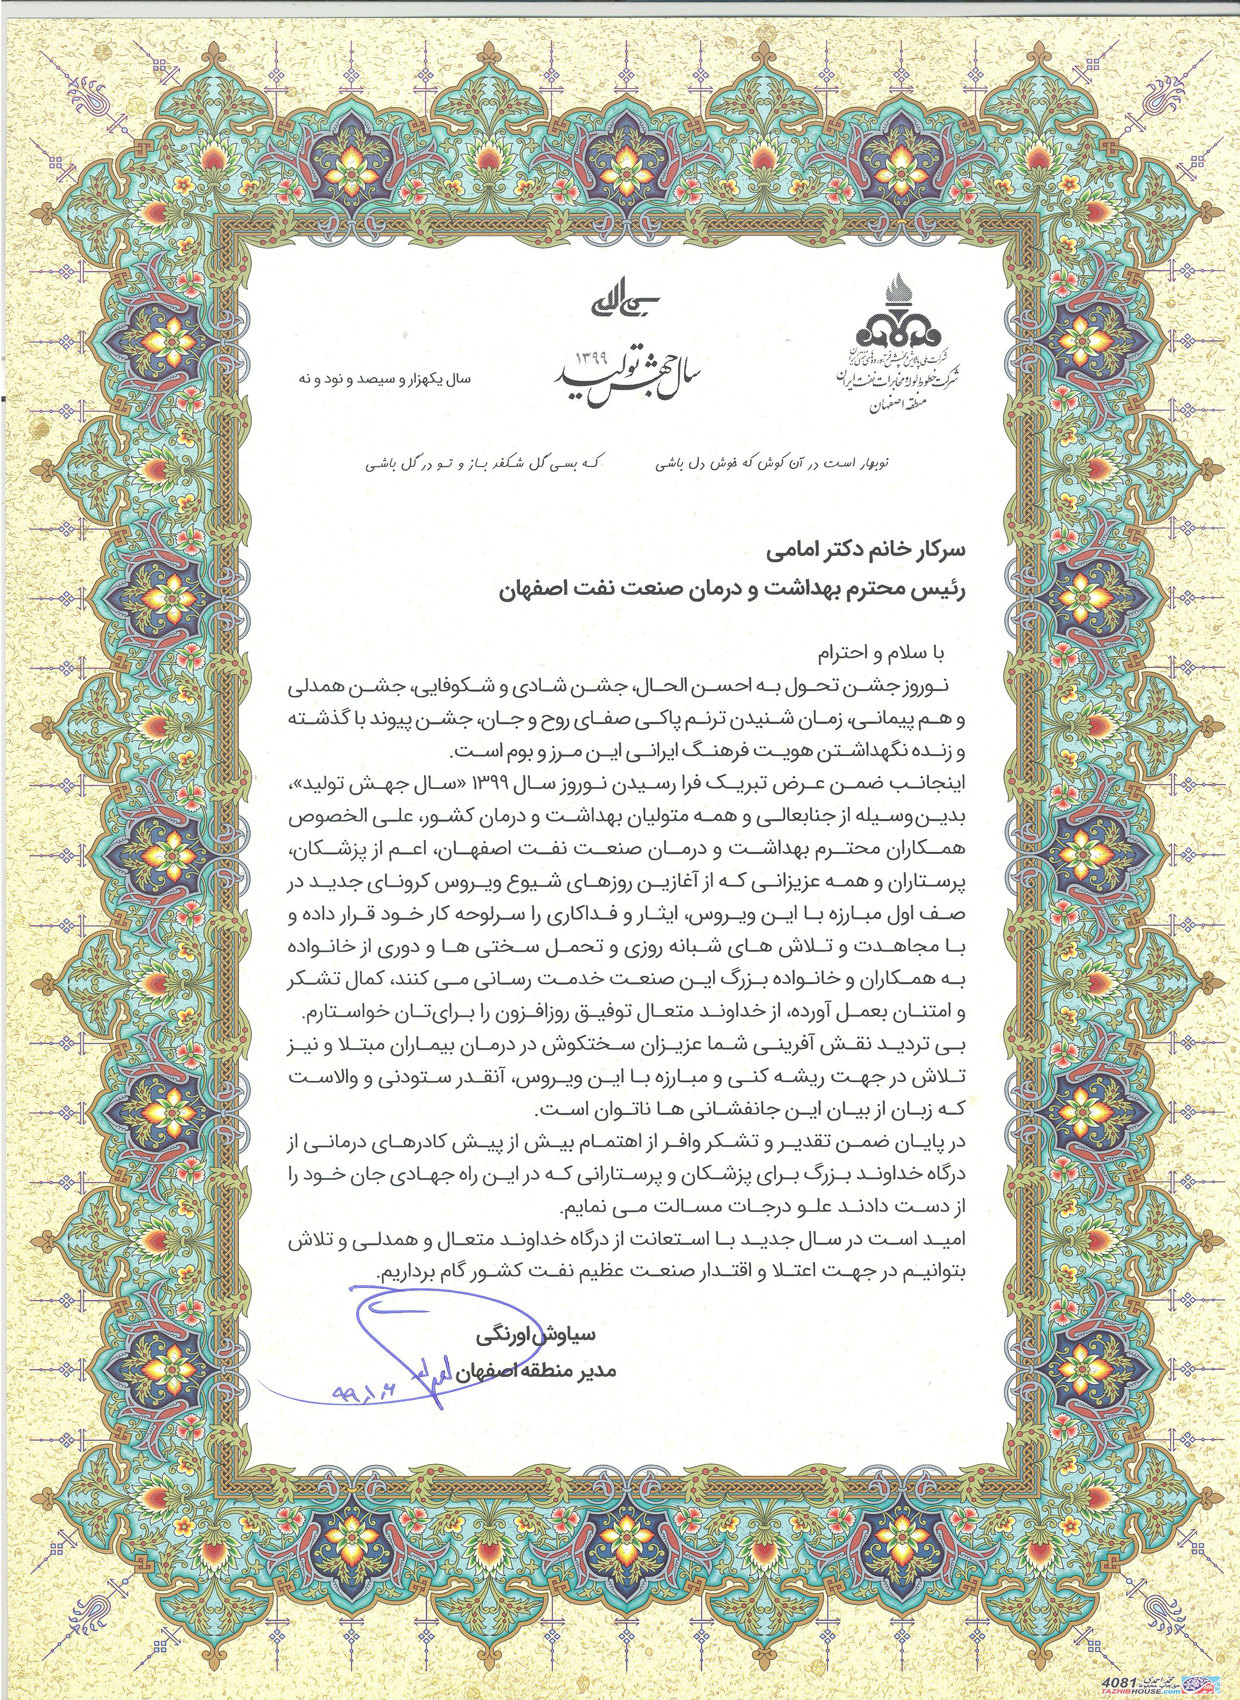 بسم الله
شرکت ملی پالایش و پخش فرآورده‌های نفتی ایران
شرکت خطوط لوله و مخابرات نفت ایران
منطقه اصفهان
۱۳۹۹
سال جهش تولید
سال یکهزار و سیصد و نود و نه
نوبهار است در آن کوش که خوش دل باشی که بسی گل شکفد باز و تو در گل باشی
سرکار خانم دکتر امامی
رئیس محترم بهداشت و درمان صنعت نفت اصفهان
با سلام و احترام
نوروز جشن تحول به احسن الحال، جشن شادی و شکوفایی، جشن همدلی
و هم پیمانی، زمان شنیدن ترنم پاکی صفای روح و جان، جشن پیوند با گذشته
و زنده نگهداشتن هویت فرهنگ ایرانی این مرز و بوم است.
اینجانب ضمن عرض تبریک فرا رسیدن نوروز سال ۱۳۹۹ «سال جهش تولید»،
بدین‌وسیله از جنابعالی و همه متولیان بهداشت و درمان کشور، علی الخصوص
همکاران محترم بهداشت و درمان صنعت نفت اصفهان، اعم از پزشکان،
پرستاران و همه عزیزانی که از آغازین روزهای شیوع ویروس کرونای جدید در
صف اول مبارزه با این ویروس، ایثار و فداکاری را سرلوحه کار خود قرار داده و
با مجاهدت و تلاش های شبانه روزی و تحمل سختی ها و دوری از خانواده
به همکاران و خانواده بزرگ این صنعت خدمت رسانی می کنند، کمال تشکر
و امتنان بعمل آورده، از خداوند متعال توفیق روزافزون را برای‌تان خواستارم.
بی تردید نقش آفرینی شما عزیزان سختکوش در درمان بیماران مبتلا و نیز
تلاش در جهت ریشه کنی و مبارزه با این ویروس، آنقدر ستودنی و والاست
که زبان از بیان این جانفشانی ها ناتوان است.
در پایان ضمن تقدیر و تشکر وافر از اهتمام بیش از پیش کادرهای درمانی از
درگاه خداوند بزرگ برای پزشکان و پرستارانی که در این راه جهادی جان خود را
از دست دادند علو درجات مسالت می نمایم.
امید است در سال جدید با استعانت از درگاه خداوند متعال و همدلی و تلاش
بتوانیم در جهت اعتلا و اقتدار صنعت عظیم نفت کشور گام برداریم.
سیاوش اورنگی
مدیر منطقه اصفهان
۹۹،۱،۶
4081
TAZHIBHOUSE.com